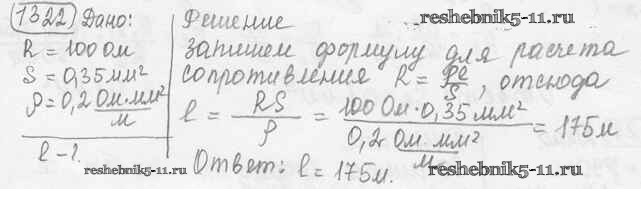 1322) Дано:
R = 100 Ом
S = 0,35 мм²
ρ = 0,2 Ом·мм²/м
l - ?
Решение
www.reshebnik5-11.ru
Запишем формулу для расчета
сопротивления R = ρl/S, отсюда
l = RS/ρ = 100 Ом·0,35 мм²/0,2 Ом·мм²/м = 175 м
Ответ: l = 175 м.
www.reshebnik5-11.ru
www.reshebnik5-11.ru